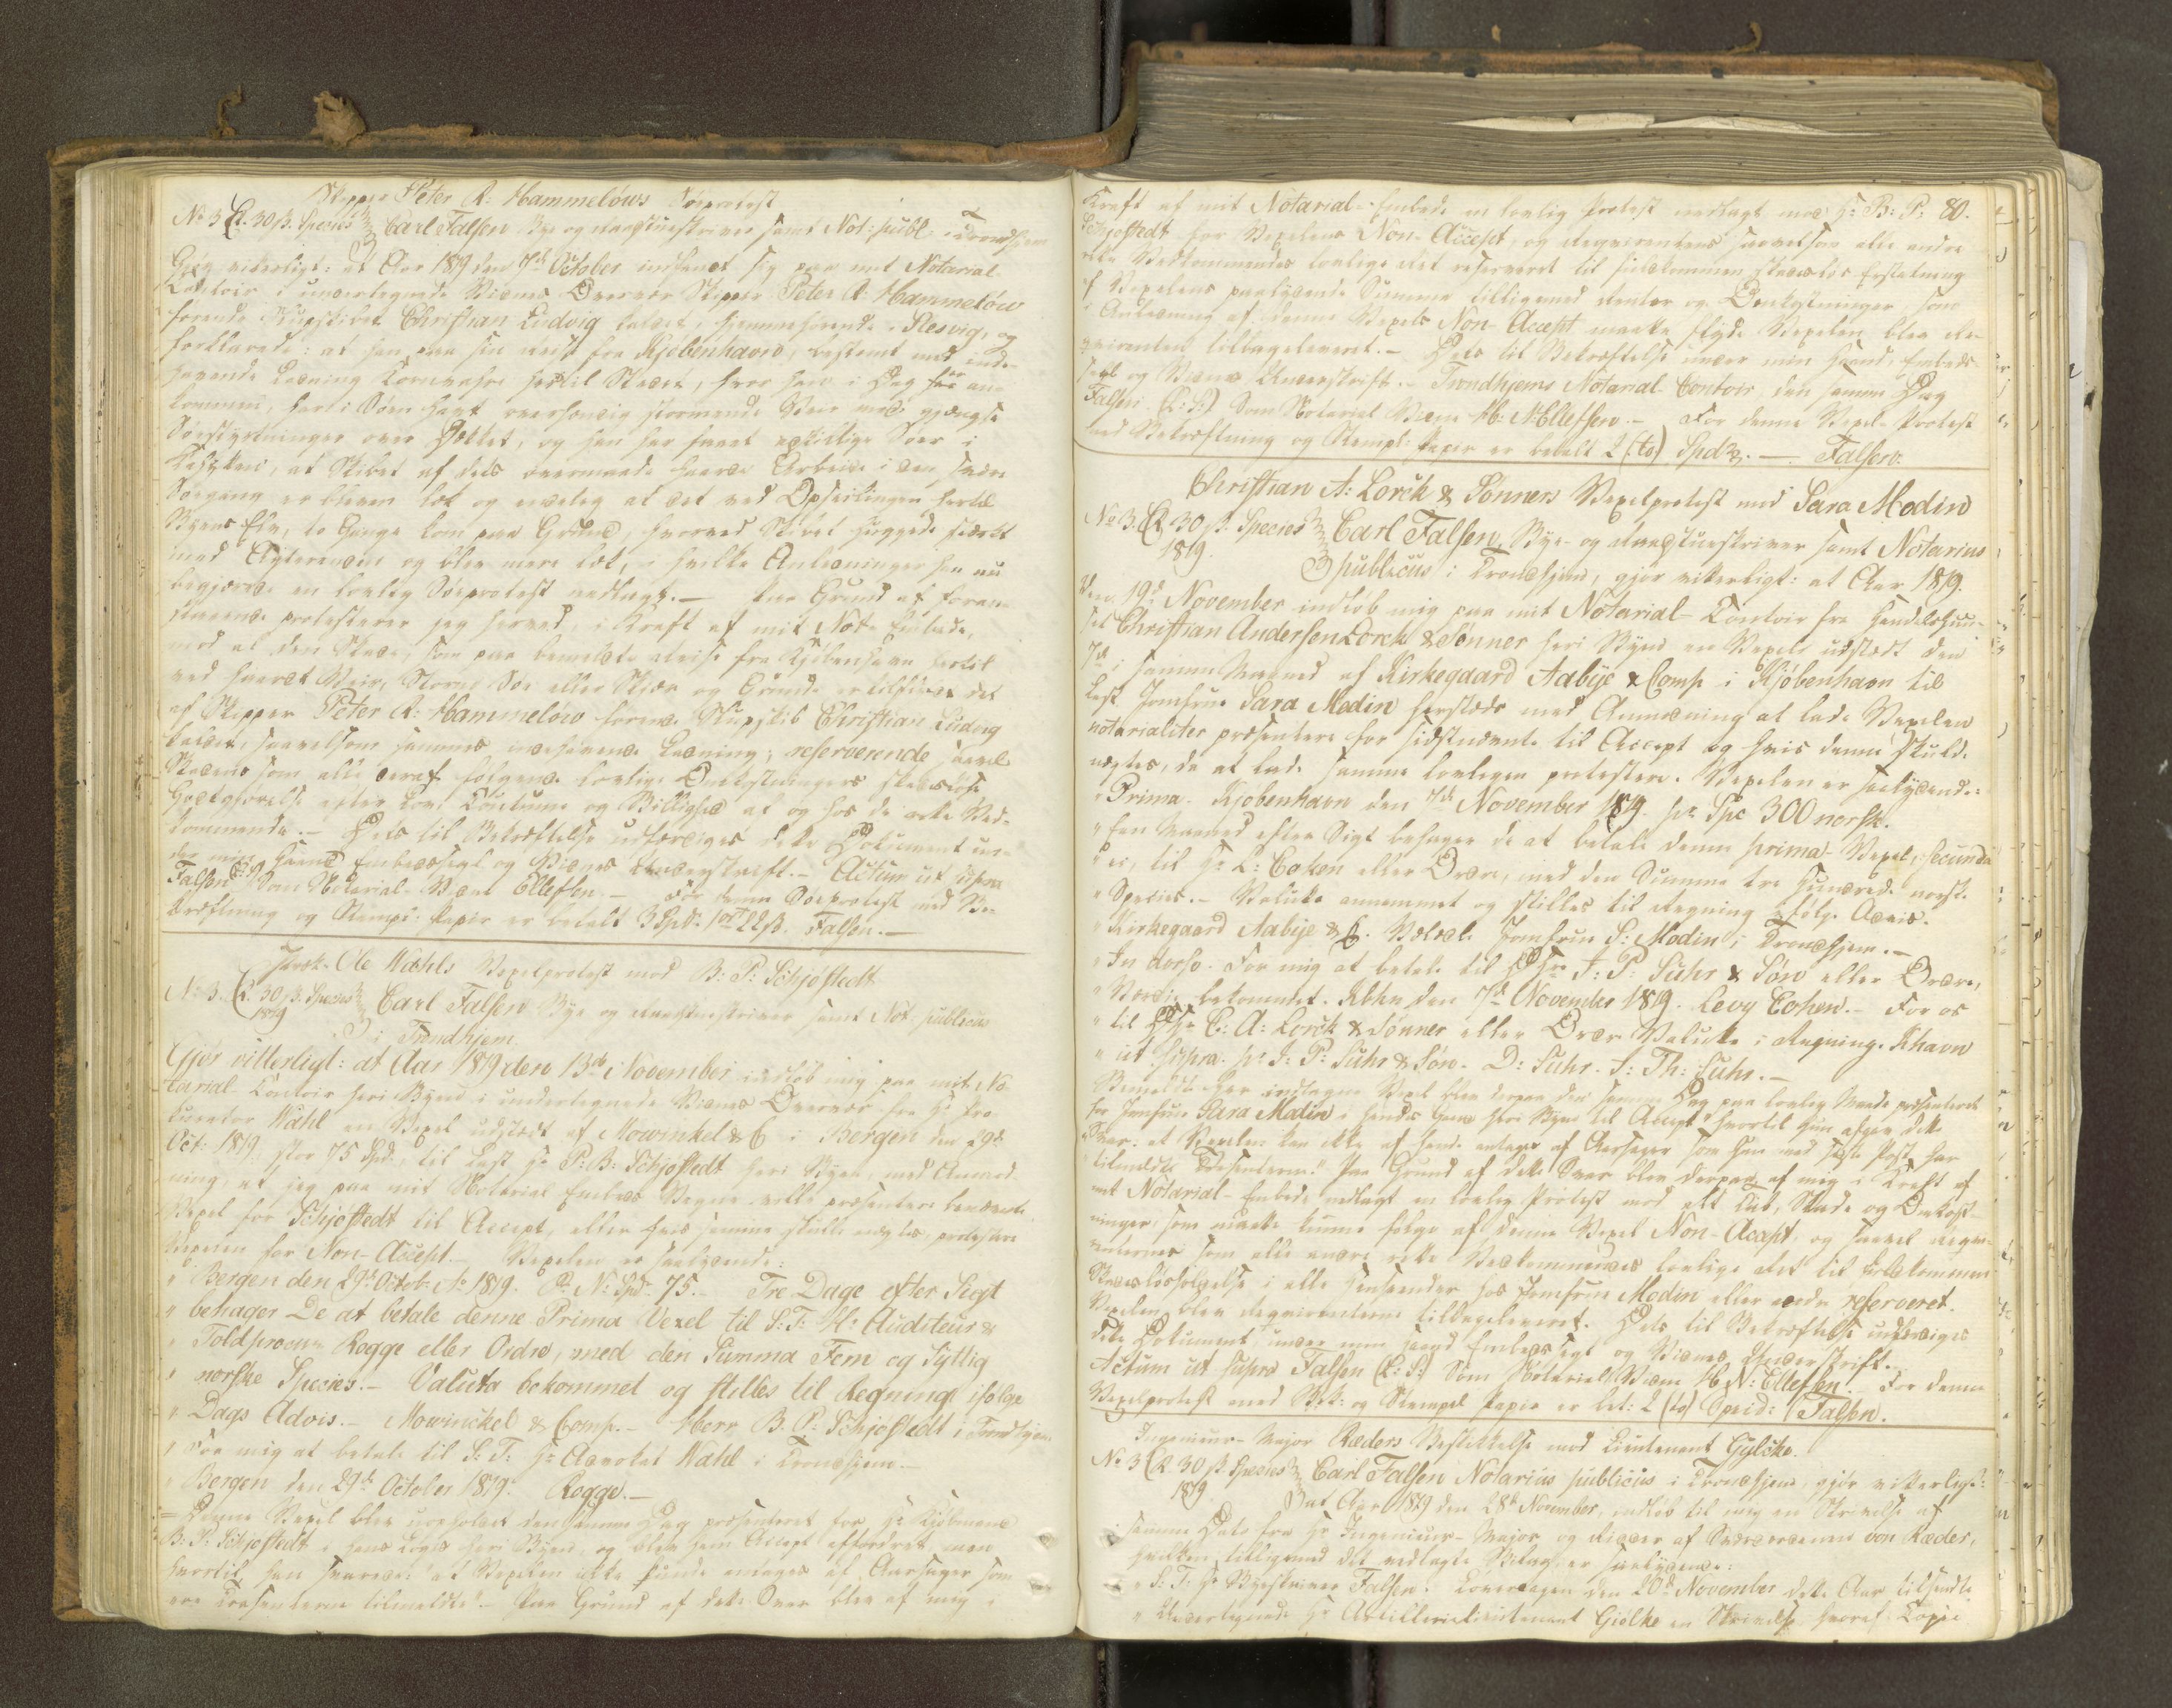 Skipper Peter A: Hammelöws Söeprotest
No 3 Cl. 30 ß. Species Carl Falsen Bye og Raadstueskriver samt Not: publ: i Trondhjem
Gjör vitterligt: at Aar 1819 den 7de October indfandt sig paa mit Notarial
Contoir i undertegnede Vidnes Overvær Skipper Peter A: Hammelöw
förende Skibet Christian Ludvig kaldet, hjemmehörende i Slesvig, og
forklarede: at han paa sin Reise fra Kjöbenhavn, bestemt med inde-
havende Ladning Kornvahre hertil Staden, hvor han i Dag er an-
kommen, har i Söen havt
Söestyrtninger over Dækket, og han har havt adskillige Söer i
at Skibet af dets overmaade haarde Arbeide i den svære
Söegang er bleven læk og endelig at det ved Opseilingen hertil
Byens Elv, to Gange kom paa Grund, hvorved Skibet huggede stærkt
med Agterenden og blev mere læk, i hvilke Anledninger han nu
begjærede en lovlig Söeprotest nedlagt. — Paa Grund af foran-
staaende protesterer jeg herved, i Kraft af mit Not: Embede,
mod al den Skade, som paa bemeldte Reise fra Kjöbenhavn hertil
ved haardt Veir, Storm Söe eller Skjær og Grunde er tilföiet det
af Skipper Peter A: Hammelöw förende Skib Christian Ludvig
kaldet, saavelsom sammes indehavende Ladning; reserverende saavel
Skadens som alle deraf fölgende lovlige Omkostningers skadeslöse
Godtgjörelse efter Lov, Coutume og Billighed af og hos de rette Ved-
kommende. — Dets til Bekræftelse udfærdiges dette Document un-
der min Haand Embedssegl og Vidnes Underskrift. — Actum ut supra
Falsen (L:S:) Som Notarial-Vidne Ellefsen. — For denne Söeprotest med Be-
kræftning og Stempl: Papir er betalt 3 Spd. 1 ort 22 ß. Falsen. —
Prok. Ole Wahls Vexelprotest mod B: P: Schjöstedt
No 3. Cl. 30 ß. Species Carl Falsen Bye og Raadstueskriver samt Not: publicus
1819 i Trondhjem.
Gjör vitterligt: at Aar 1819 den 13de November indlöb mig paa mit No-
tarial Contoir heri Byen i undertegnede Vidnes Overvær fra Hr Pro-
curator Wahl en Vexel udstedt af Mowinkel & C i Bergen den 29de
Oct: 1819 stor 75 Spd, til Last Hr P: B: Schjöstedt heri Byen, med Anmod-
ning, at jeg paa mit Notarial Embeds Vegne ville præsentere benævnte
Vexel for Schjöstedt til Accept, eller hvis samme skulle nægtes, protestere
Vexelen for Non-Accept. — Vexelen er saalydende:
" Bergen den 29de Octob: Ao 1819. Pr No Spd. 75. — Tre Dage efter Sigt
" behager De at betale denne Prima Vexel til S: T: Hr Auditeur &
" Toldprocur: Rogge eller Ordre, med den Summa Fem og Syttig
" norske Species. — Valuta bekommet og stilles til Regning ifölge
" Dags Advis. — Mowinckel & Comp. — Herr B. P: Schjöstedt i Trondhjem
" For mig at betale til S: T: Hr Advokat Wahl i Trondhjem. —
" Bergen den 29de October 1819. Rogge. —
= Denne Vexel blev den samme Dag præsenteret for Hr Kjöbmand
B: P: Schjöstedt i hans Logis heri Byen, og blev ham Accept affordret men
hvortil han svarede: "at Vexelen ikke kunde antages af Aarsager som
ere Trassenterne tilmeldte". — Paa Grund af dette Svar blev af mig i
80.
Kraft af mit Notarial-Embede en lovlig Protest nedlagt mod Hr: B: P:
Schjöstedt for Vexelens Non-Accept, og Reqvirentens saavelsom alle andre
rette Vedkommendes lovlige Ret reserveret til fuldkommen skadeslös Erstatning
af Vexelens paalydende Summa tilligemed Renter og Omkostninger, som
i Anledning af denne Vexels Non-Accept maatte flyde. Vexelen blev Re-
qvirenten tilbageleveret. — Dets til Bekræftelse under min Haand, Embeds-
segl og Vidnes Underskrift. — Trondhjems Notarial-Contoir, den samme Dag
Falsen. (L: S:) Som Notarial-Vidne H: N Ellefsen. — For denne Vexel-Protest
med Bekræftning og Stempl: Papir er betalt 2 (to) Spd. — Falsen.
Christian A: Lorck & Sönners Vexelprotest mod Sara Modin
No 3. Cl. 30 ß. Species Carl Falsen, Bye- og Raadstueskriver samt Notarius
1819. publicus i Trondhjem, gjör vitterligt: at Aar 1819.
den 19de November indlöb mig paa mit Notarial-Contoir fra Handelshuu-
set Christian Andersen Lorck & Sönner heri Byen en Vexel udstædt den
7de i samme Maaned af Kirkegaard Aabye & Comp i Kjöbenhavn til
Last Jomfrue Sara Modin hersteds med Anmodning at lade Vexelen
notarialiter præsentere for sidstnævnte til Accept og hvis denne skulde
nægtes, da at lade samme lovligen protestere. Vexelen er saalydende:
" Prima. Kjöbenhavn den 7de November 1819. pr Spe 300 norsk.
" Een Maaned efter Sigt behager De at betale denne prima-Vexel, secunda
" ei, til Hr L: Cohen eller Ordre, med den Summa tre hundrede norsk.
" Species. — Valuta annammet og stilles til Regning ifölge Advis.
" Kirkegaard Aabye & C. Jomfrue S: Modin i Trondhjem. —
" In dorso. For mig at betale til HHrr J: P: Suhr & Sön eller Ordre,
" Værdie bekommet. Kbhvn den 7de November 1819. Levy Cohen. — For os
" til HHr C: A: Lorck & Sönner eller Ordre Valuta i Regning. Khavn
" ut supra. pr J: P: Suhr & Sön. D: Suhr. J: Th: Suhr. —
Vexel blev derpaa den samme Dag paa lovlig Maade præsenteret
for Jomfrue Sara Modin i hendes heri Byen til Accept, hvortil hun afgav dette
Svar: at Vexelen kan ikke af hende antages af Aarsager som hun med sidste Post har
tilmeldt Trassenterne." Paa Grund af dette Svar blev derpaa af mig i Kraft af
mit Notarial-Embede nedlagt en lovlig Protest mod alt Tab, Skade og Omkost-
ninger, som maatte kunne fölge af denne Vexel Non-Accept, og saavel Reqvi-
renternes som alle andre rette Vedkommendes lovlige Ret til fuldkommen
Skadeslösholdelse i alle Henseender hos Jomfrue Modin eller andre reserveret.
Vexelen blev Reqvirenterne tilbageleveret. Dets til Bekræftelse udfærdiges
dette Dokument under min Haand Embedssegl og Vidnes Underskrift.
Actum ut supra Falsen (L: S:) Som Notarial Vidne H. N: Ellefsen. — For denne
Vexelprotest med Bek: og Stempel Papir er bet: 2 (to) Specid: Falsen.
Ingenieur-Major Ræders Beskikkelse mod Lieutenant Gylcke.
No 3 Cl. 30 ß. Species Carl Falsen Notarius publicus i Trondhjem, gjör vitterligt:
1819 at Aar 1819 den 28de November, indlöb til mig en Skrivelse af
samme Dato fra Hr Ingenieur-Major og Ridder af Sværdordenen von Ræder,
hvilken, tilligemed det vedlagte Bilag, er saalydende:
" S: T: Hr Byeskriver Falsen. Löverdagen den 20de November dette Aar tilsendte
" Undertegnede Hr Artillerielieutenant Giölke en Skrivelse hvoraf Copie